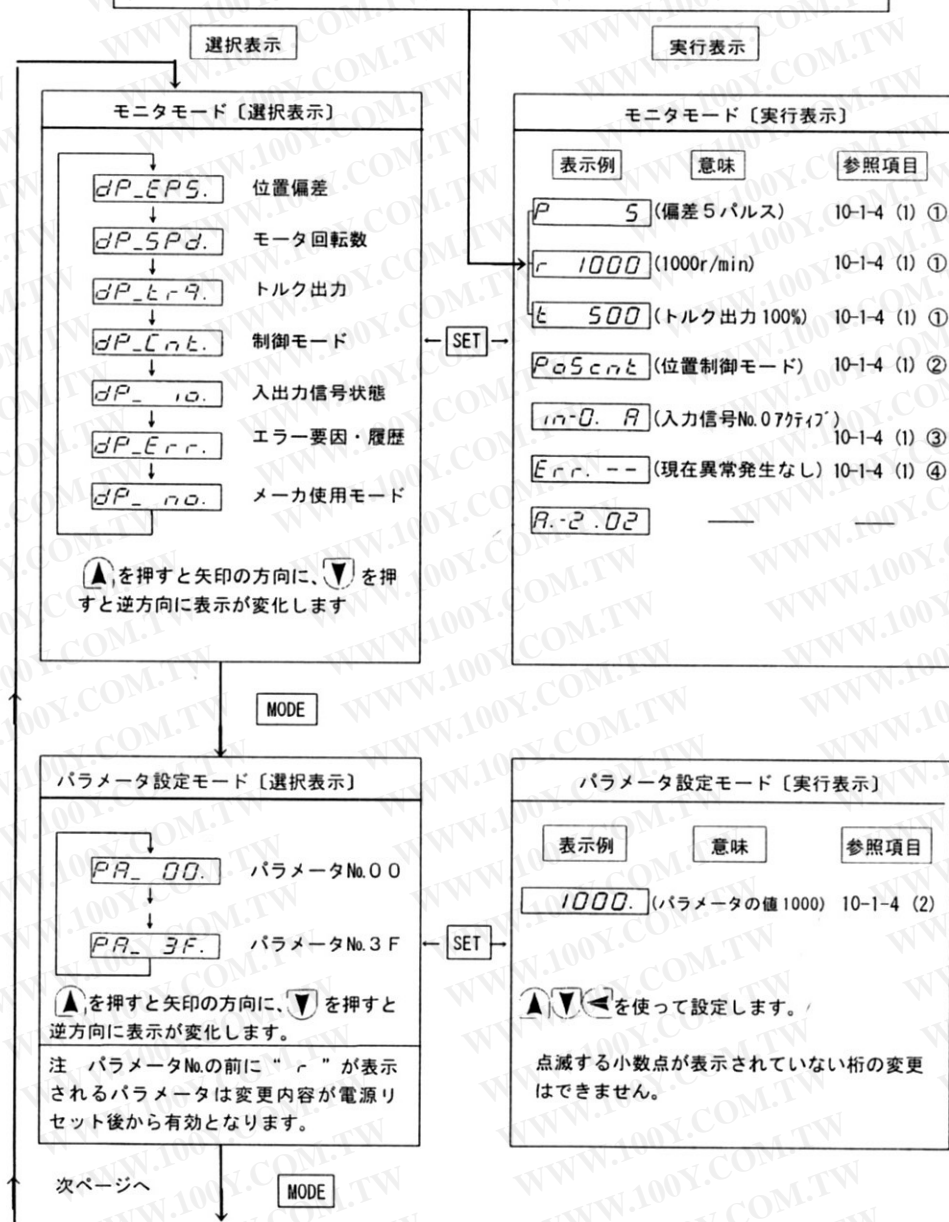 選択表示
実行表示
モニタモード〔選択表示〕
dP_EPS. 位置偏差
dP_SPd. モータ回転数
dP_trq. トルク出力
dP_Cnt. 制御モード
dP_ io. 入出力信号状態
dP_Err. エラー要因・履歴
dP_ no. メーカ使用モード
▲を押すと矢印の方向に、▼を押
すと逆方向に表示が変化します
SET
モニタモード〔実行表示〕
表示例 意味 参照項目
P 5 (偏差5パルス) 10-1-4 (1) ①
r 1000 (1000r/min) 10-1-4 (1) ①
t 500 (トルク出力100%) 10-1-4 (1) ①
PoScnt (位置制御モード) 10-1-4 (1) ②
in-0. A (入力信号No.0アクティブ)
10-1-4 (1) ③
Err. -- (現在異常発生なし) 10-1-4 (1) ④
A.-2.02 —— ——
MODE
パラメータ設定モード〔選択表示〕
PA_ 00. パラメータNo.00
PA_ 3F. パラメータNo.3F
▲を押すと矢印の方向に、▼を押すと
逆方向に表示が変化します。
注 パラメータNo.の前に“ r ”が表示
されるパラメータは変更内容が電源リ
セット後から有効となります。
SET
パラメータ設定モード〔実行表示〕
表示例 意味 参照項目
1000. (パラメータの値1000) 10-1-4 (2)
▲▼◀を使って設定します。
点滅する小数点が表示されていない桁の変更
はできません。
次ページへ
MODE
WWW.100Y.COM.TW